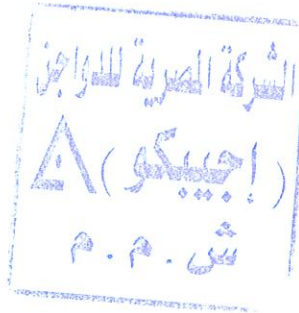 الشركة المصرية للدواجن
(إجيبكو) Δ
ش . م . م